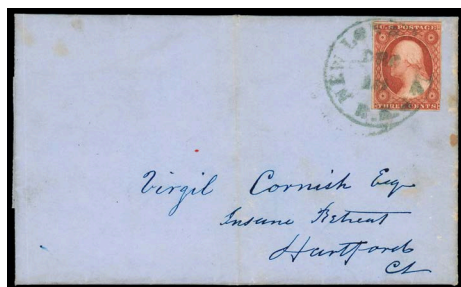 U.S. POSTAGE
THREE CENTS
NEW LO
DEC
Virgil Cornish Esq
Insane Retreat
Hartford
Ct